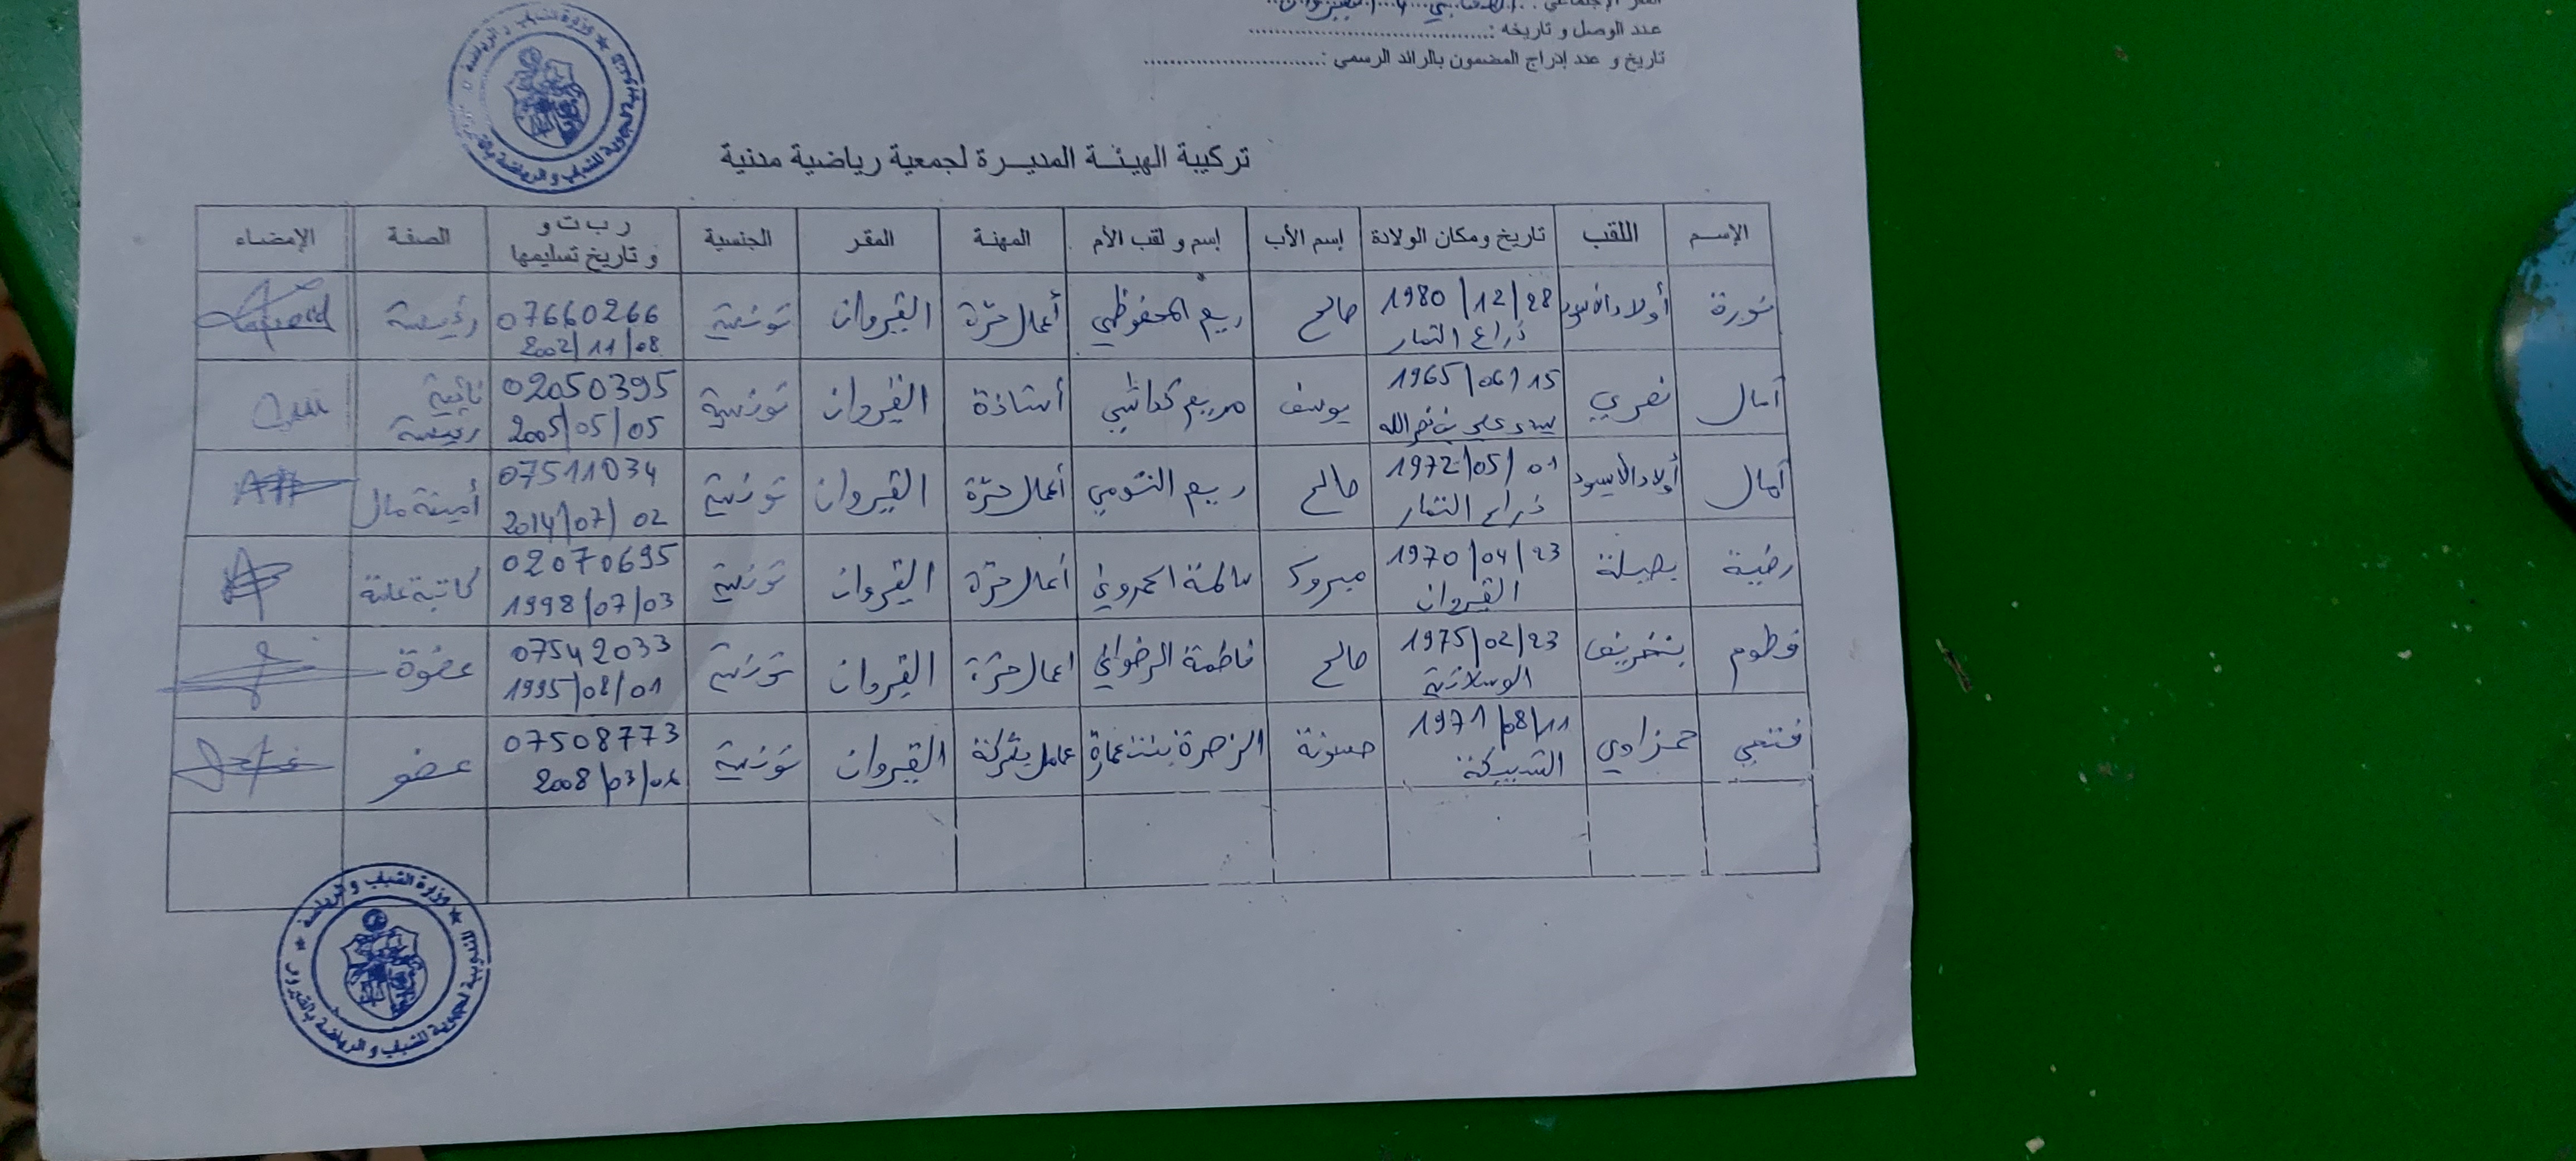 عدد الوصل و تاريخه :
تاريخ و عدد إدراج المضمون بالرائد الرسمي :
تركيبة الهيئة المديرة لجمعية رياضية مدنية
الإسم اللقب تاريخ ومكان الولادة إسم الأب إسم و لقب الأم المهنة المقر الجنسية ر ب ت و و تاريخ تسليمها الصفة الإمضاء
نورة أولاد الأسود 1980/12/28 ذراع التمار صالح ريم المحفوظي أعمال حرة القيروان تونسية 07660266 2002/11/08 رئيسة
آمال نصري 1965/06/15 سيدي علي بن نصر الله يوسف مريم أستاذة القيروان تونسية 02050395 2005/05/05 نائبة رئيسة
آمال أولاد الأسود 1972/05/01 ذراع التمار صالح ريم التومي أعمال حرة القيروان تونسية 07511034 2014/07/02 أمينة مال
رضية بصيلة 1970/04/23 القيروان مبروك سالمة الحمروني أعمال حرة القيروان تونسية 02070695 1998/07/03 كاتبة عامة
فطوم بنخريف 1975/02/23 الوسلاتية صالح فاطمة الرضواني اعمال حرة القيروان تونسية 07542033 1995/08/01 عضوة
فتحي حمزاوي 1971/08/11 الشبيكة حسونة الزهرة بنت عمارة عامل بشركة القيروان تونسية 07508773 2008/03/06 عضو
وزارة الشباب و الرياضة
المندوبية الجهوية للشباب و الرياضة بالقيروان